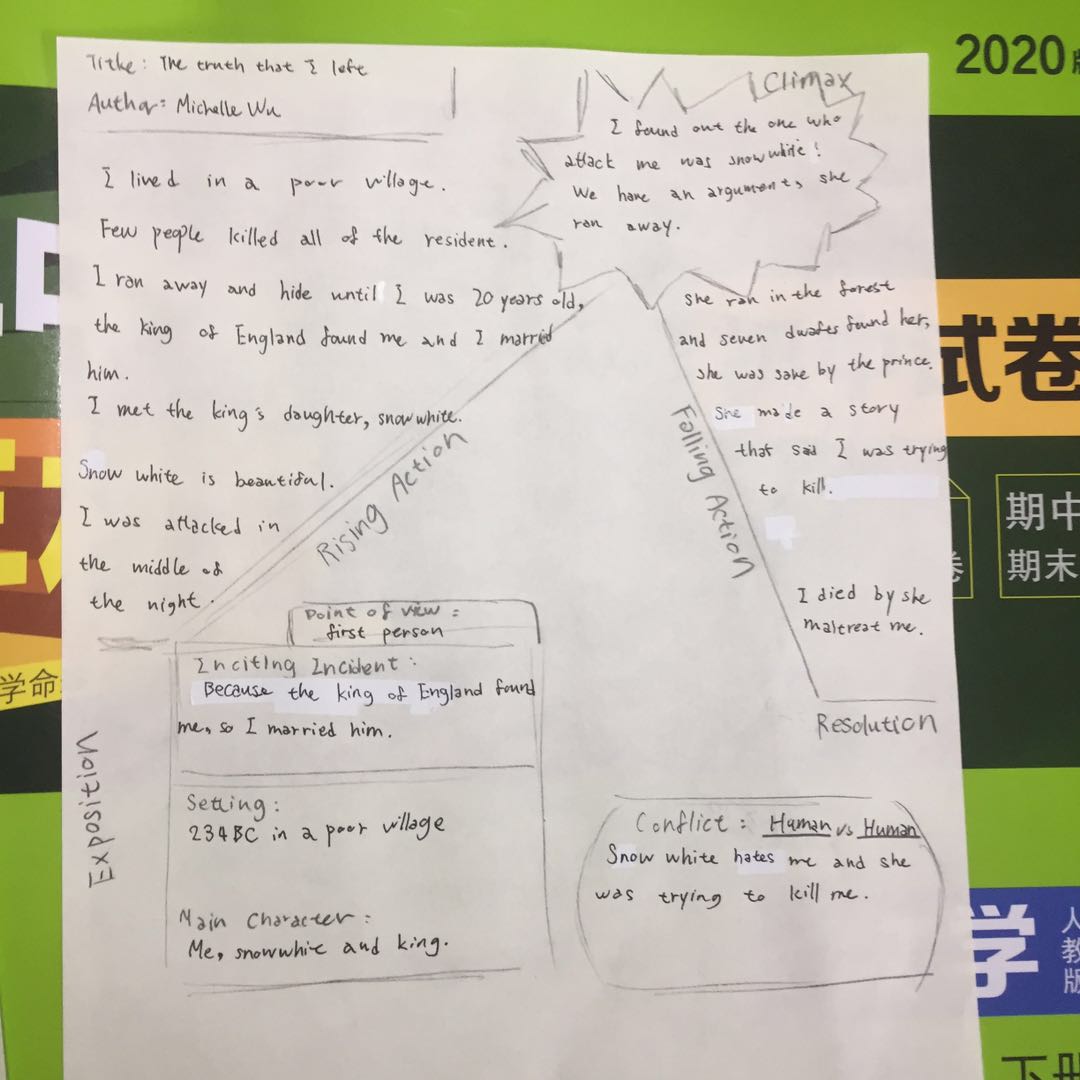 Title: The truth that I left
Author: Michelle Wu
I lived in a poor village.
Few people killed all of the resident.
I ran away and hide until I was 20 years old,
the king of England found me and I married
him.
I met the king's daughter, snowwhite.
Snow white is beautiful.
I was attacked in
the middle of
the night.
Rising Action
Climax
I found out the one who
attack me was snowwhite!
We have an argument, she
ran away.
She ran in the forest
and seven dwafes found her,
she was save by the prince.
She made a story
that said I was trying
to kill.
Falling Action
I died by she
maltreat me.
Resolution
Point of view:
first person
Inciting Incident:
Because the king of England found
me, so I married him.
Setting:
234BC in a poor village
Main Character:
Me, snowwhite and king.
Exposition
Conflict: Human vs Human
Snow white hates me and she
was trying to kill me.
2020
试卷
期中
期末
卷
学命
学
人
教
版
下册